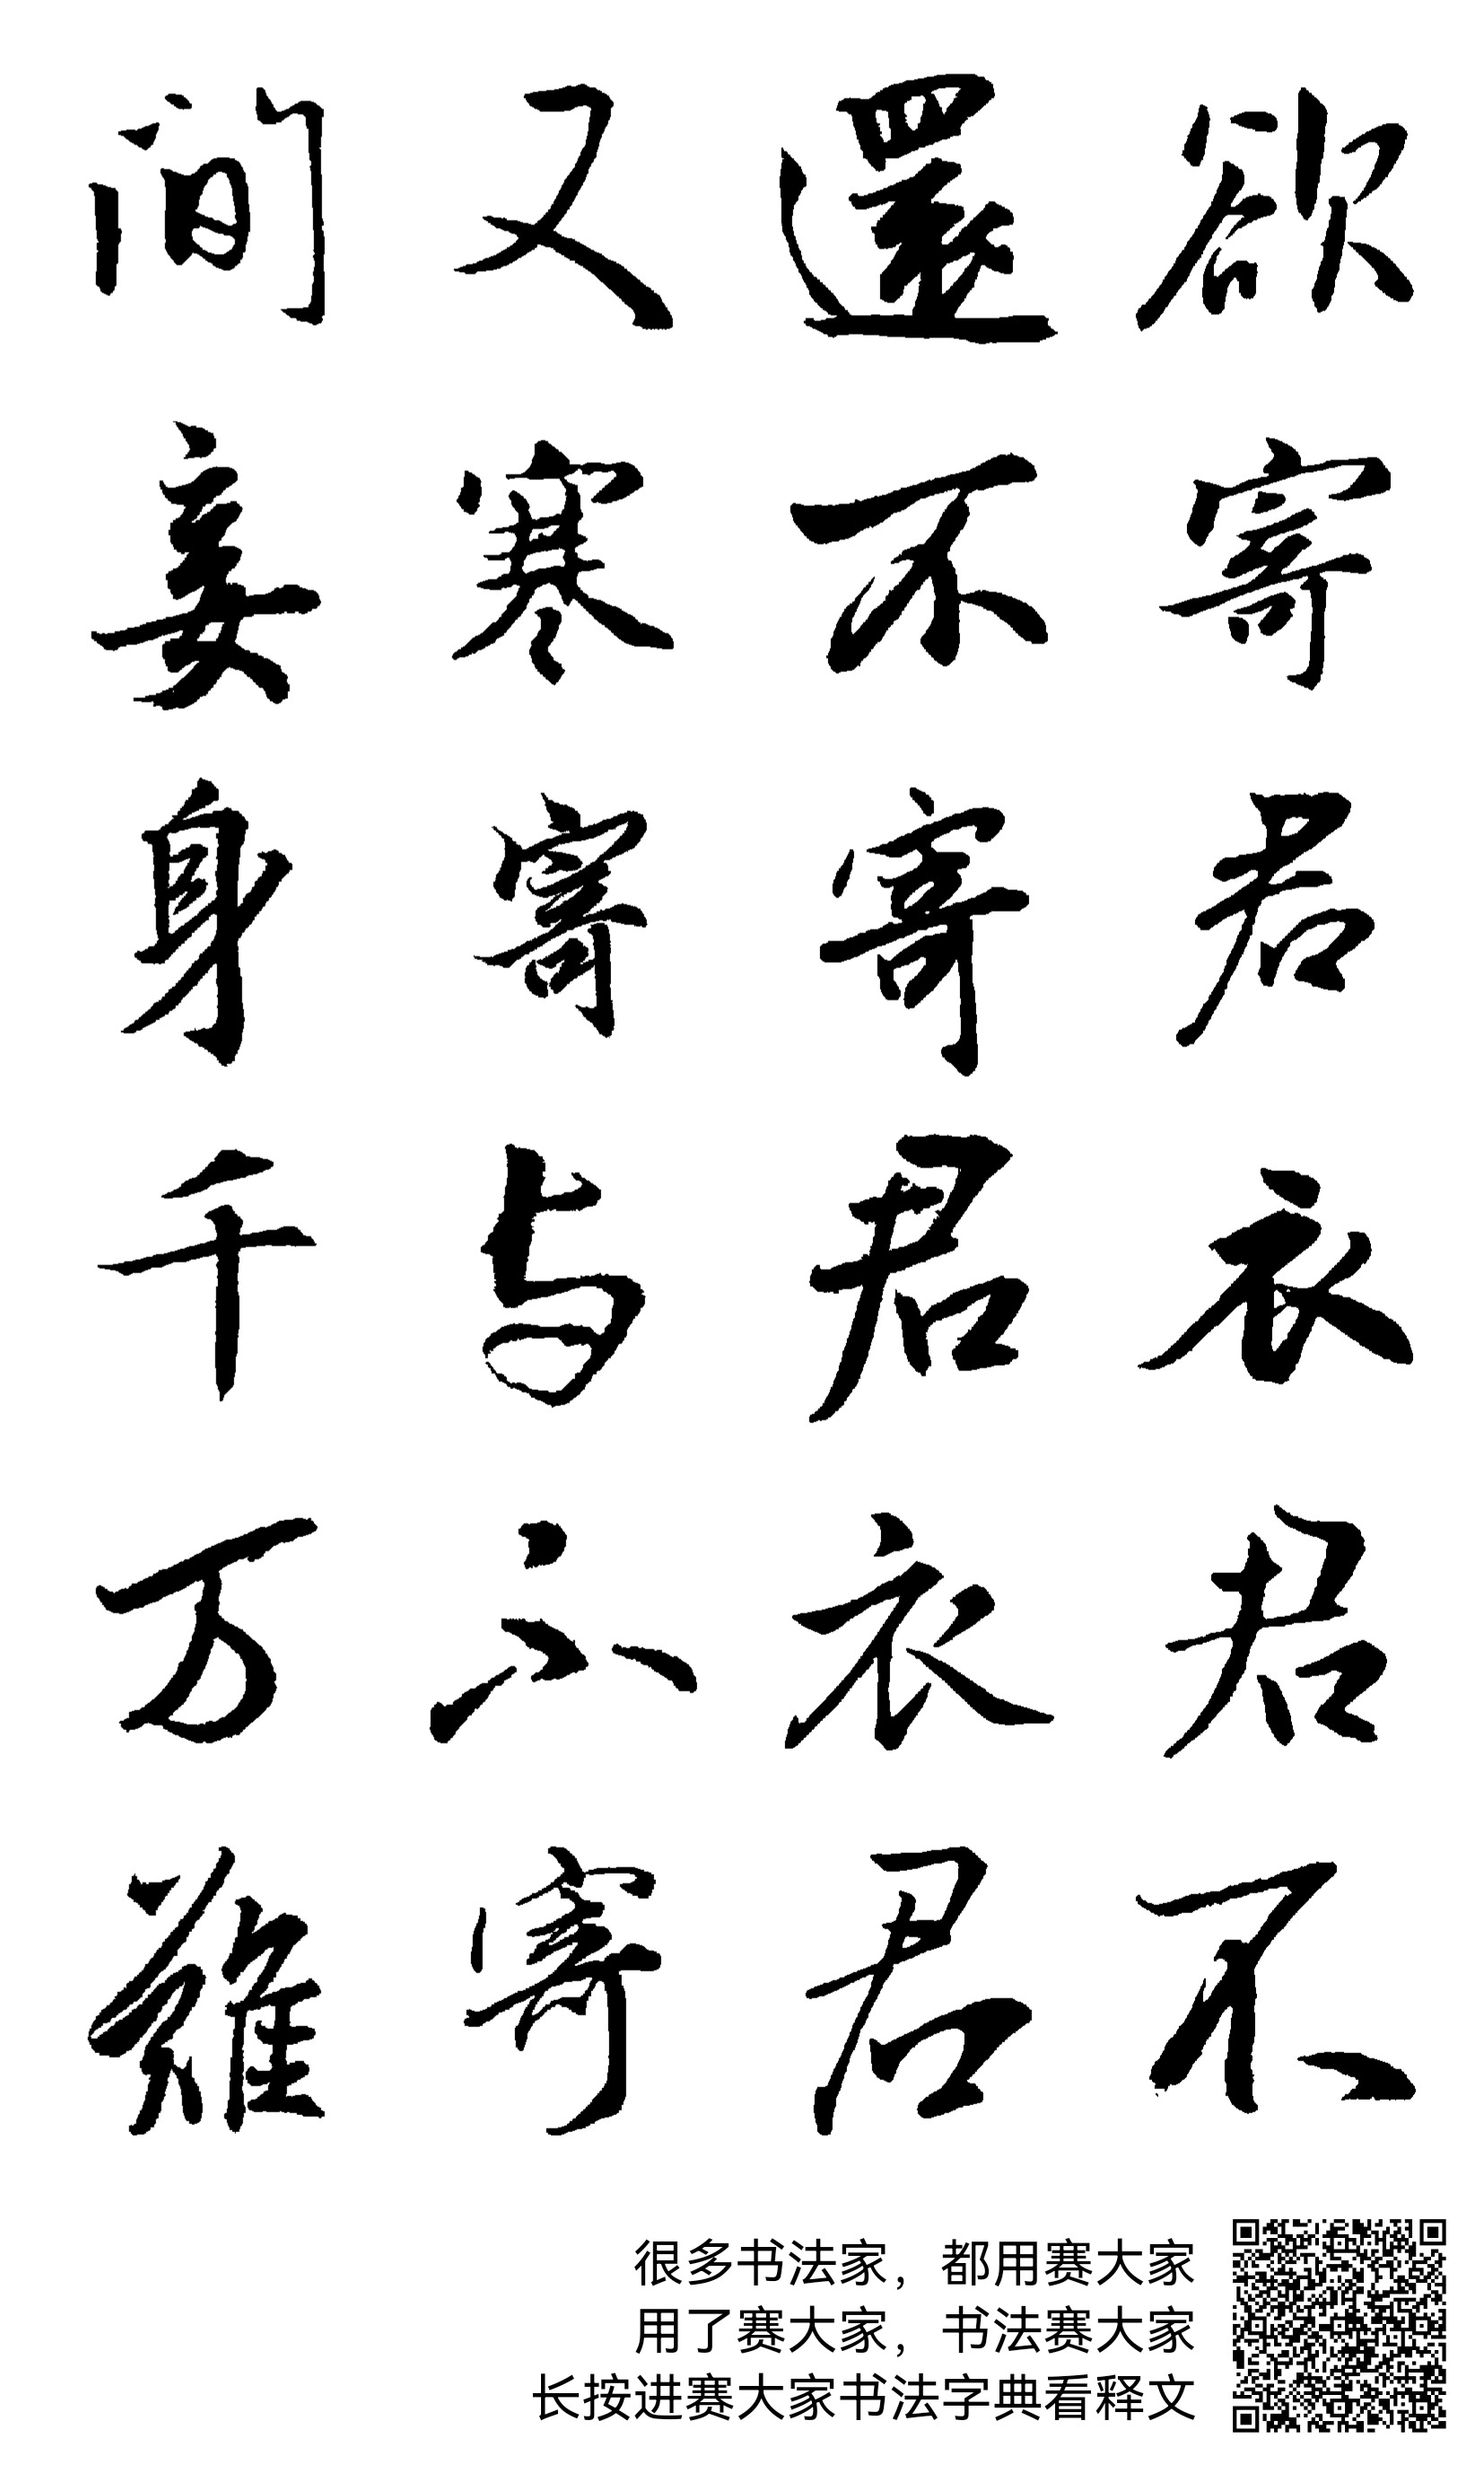 欲寄君衣君不
還不寄君衣君
又寒寄与不寄
间妾身千万難
很多书法家，都用赛大家
用了赛大家，书法赛大家
长按进赛大家书法字典看释文